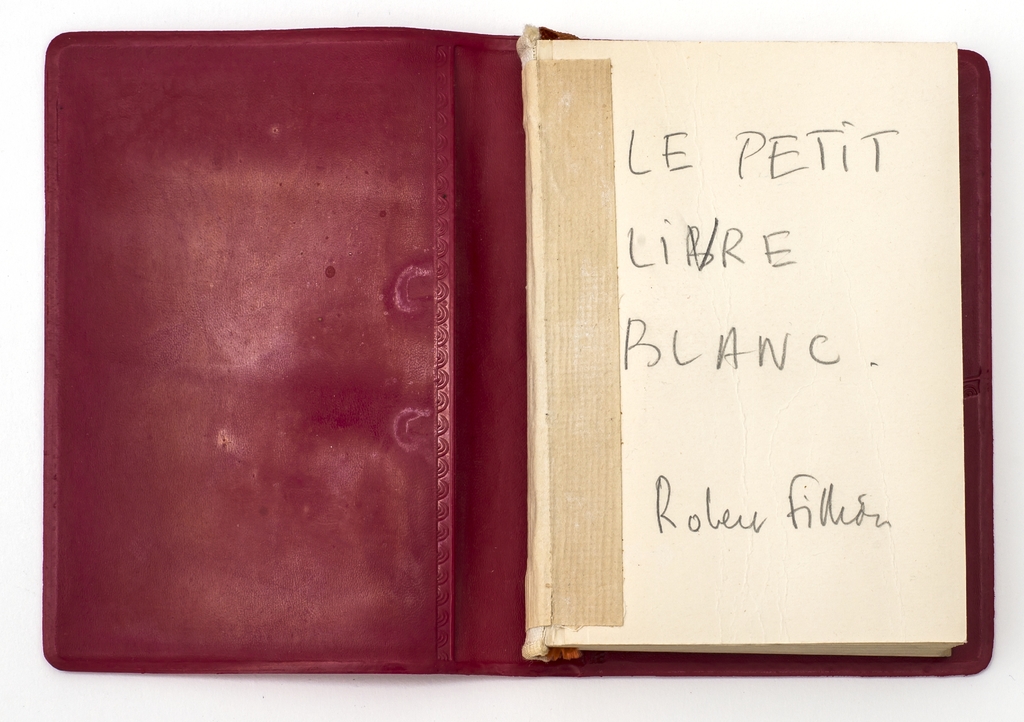 LE PETiT
LiVRE
BLANC.
Robert Filliou